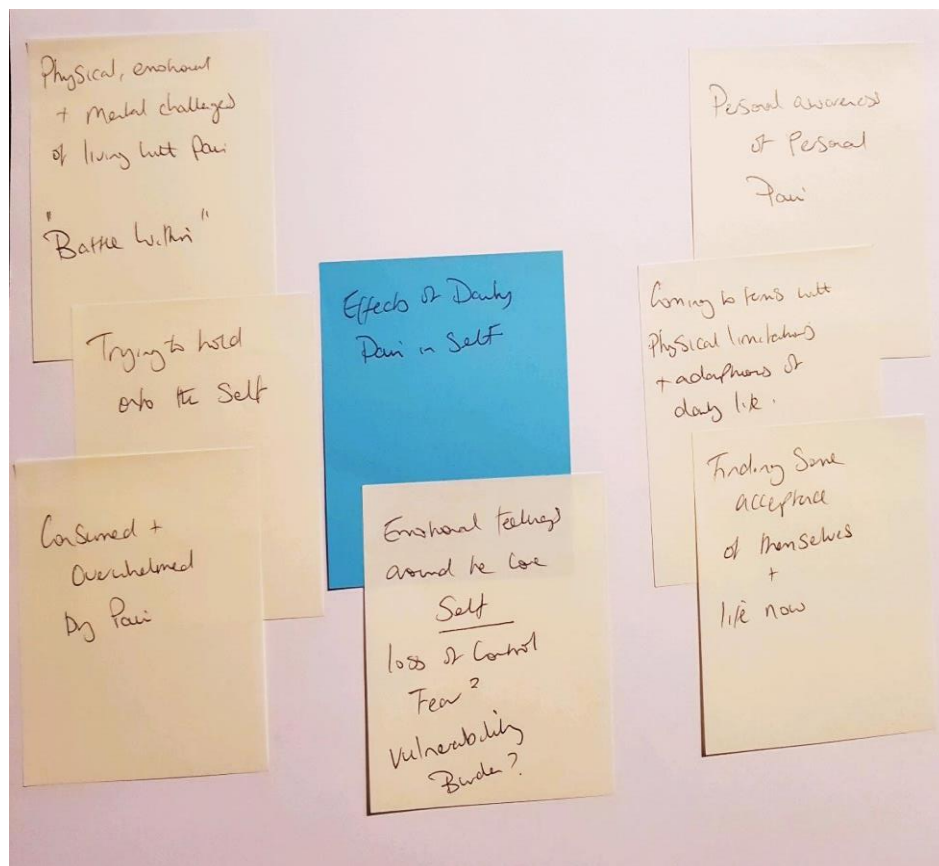 Physical, emotional
+ mental challenges
of living with Pain
"Battle Within"
Trying to hold
onto the Self
Consumed +
Overwhelmed
by Pain
Effects of Daily
Pain in Self
Emotional feelings
around the core
Self
loss of Control
Fear?
Vulnerability
Burden?
Personal awareness
of Personal
Pain
Coming to terms with
Physical limitations
+ adaptions of
daily life.
Finding Some
acceptance
of themselves
+
life now